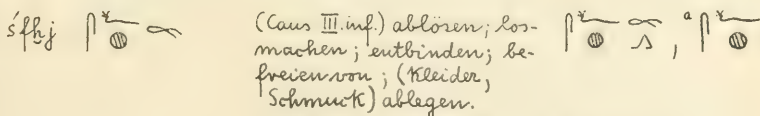 śfḫj 𓋴𓆑𓐍 (Caus III. inf.) ablösen; los- 𓋴𓆑𓐍 𓂻, ᵃ 𓋴𓆑𓐍
machen; entbinden; be-
freien von; (Kleider,
Schmuck) ablegen.